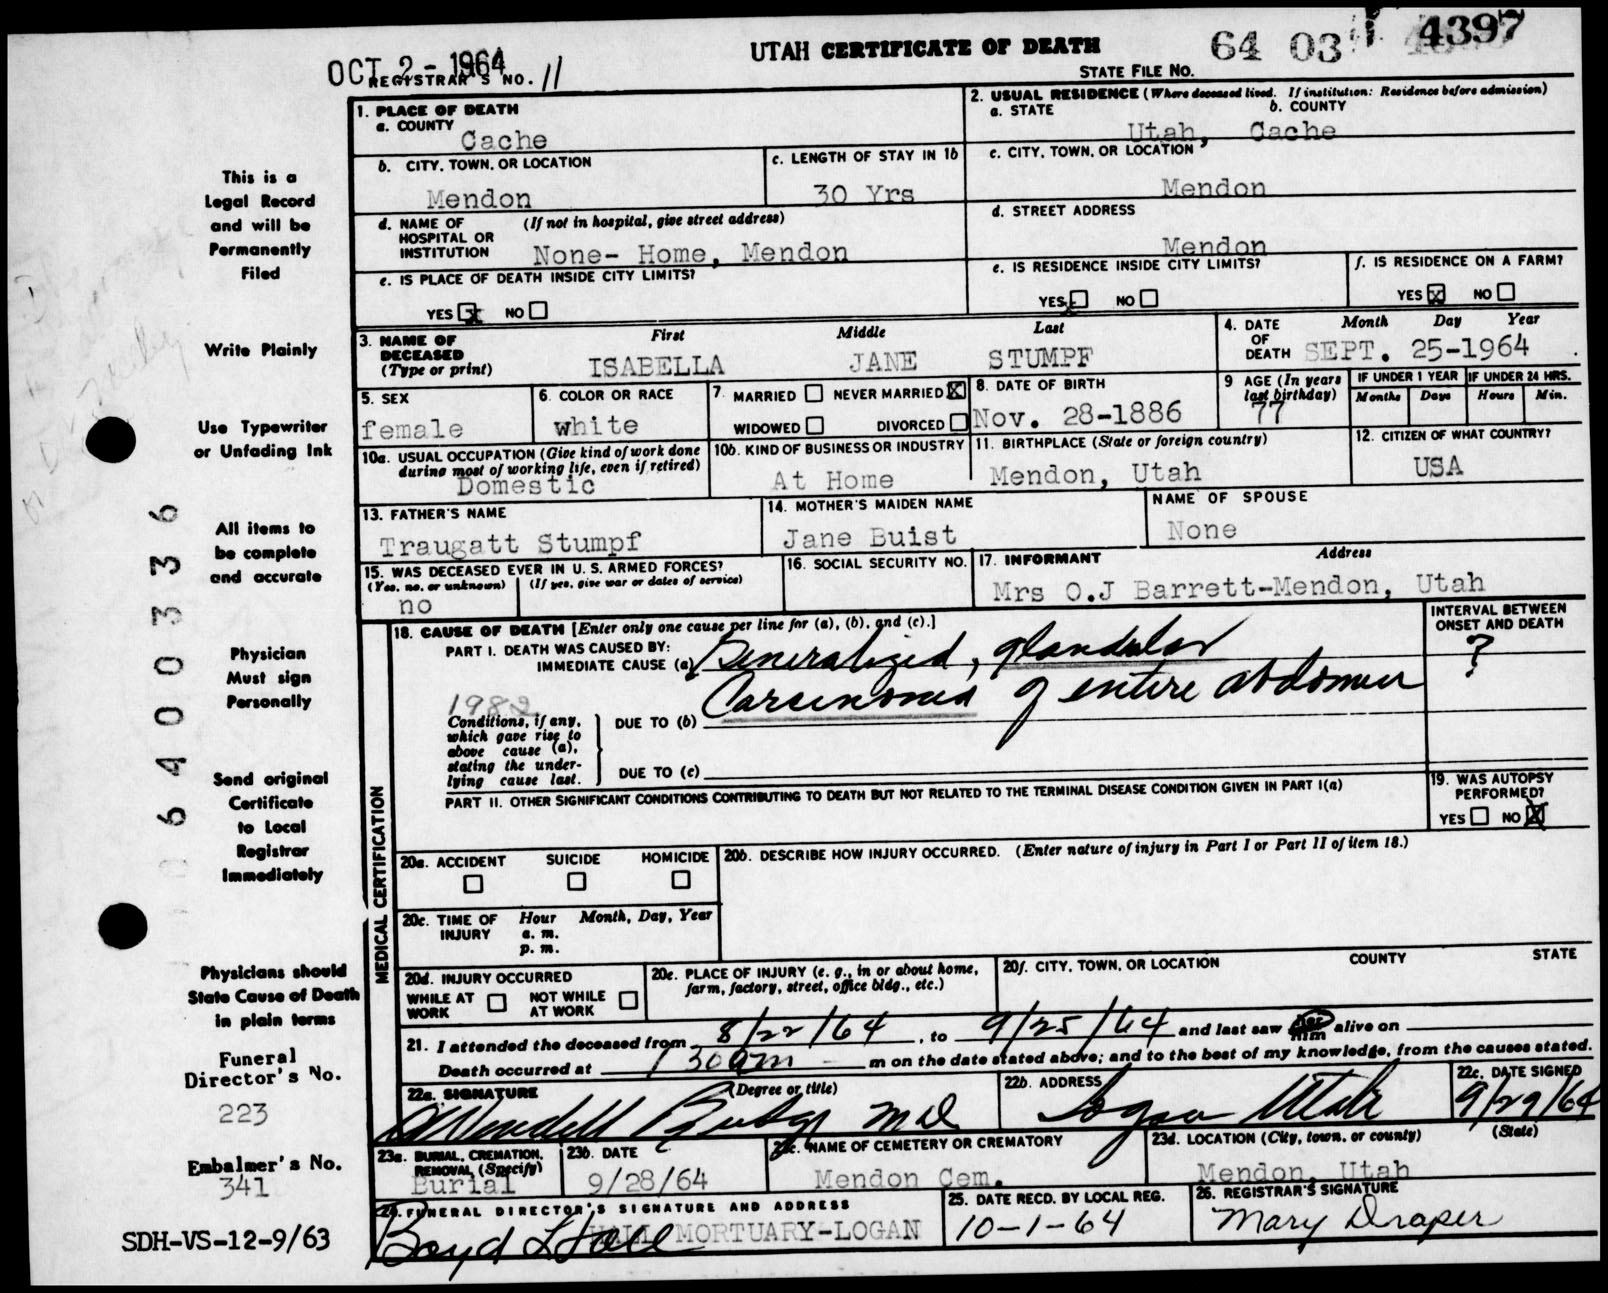 OCT 2 - 1964
UTAH CERTIFICATE OF DEATH
64 03
4397
REGISTRAR'S NO. 11
STATE FILE No.
1. PLACE OF DEATH
a. COUNTY
Cache
2. USUAL RESIDENCE (Where deceased lived. If institution: Residence before admission)
a. STATE b. COUNTY
Utah, Cache
b. CITY, TOWN, OR LOCATION
Mendon
c. LENGTH OF STAY IN 1b
30 Yrs
c. CITY, TOWN, OR LOCATION
Mendon
d. NAME OF HOSPITAL OR INSTITUTION
(If not in hospital, give street address)
None- Home, Mendon
d. STREET ADDRESS
Mendon
e. IS PLACE OF DEATH INSIDE CITY LIMITS?
YES x NO
e. IS RESIDENCE INSIDE CITY LIMITS?
YES x NO
f. IS RESIDENCE ON A FARM?
YES x NO
3. NAME OF DECEASED (Type or print)
First Middle Last
ISABELLA JANE STUMPF
4. DATE OF DEATH
Month Day Year
SEPT. 25-1964
5. SEX
female
6. COLOR OR RACE
white
7. MARRIED NEVER MARRIED X
WIDOWED DIVORCED
8. DATE OF BIRTH
Nov. 28-1886
9 AGE (In years last birthday)
77
IF UNDER 1 YEAR
Months Days
IF UNDER 24 HRS.
Hours Min.
10a. USUAL OCCUPATION (Give kind of work done during most of working life, even if retired)
Domestic
10b. KIND OF BUSINESS OR INDUSTRY
At Home
11. BIRTHPLACE (State or foreign country)
Mendon, Utah
12. CITIZEN OF WHAT COUNTRY?
USA
13. FATHER'S NAME
Traugatt Stumpf
14. MOTHER'S MAIDEN NAME
Jane Buist
NAME OF SPOUSE
None
15. WAS DECEASED EVER IN U. S. ARMED FORCES?
(Yes, no, or unknown) (If yes, give war or dates of service)
no
16. SOCIAL SECURITY NO.
17. INFORMANT Address
Mrs O.J Barrett-Mendon, Utah
MEDICAL CERTIFICATION
18. CAUSE OF DEATH [Enter only one cause per line for (a), (b), and (c).]
PART I. DEATH WAS CAUSED BY:
IMMEDIATE CAUSE (a) Generalized, glandular
1982
Carcinoma of entire abdomen
INTERVAL BETWEEN ONSET AND DEATH
?
Conditions, if any, which gave rise to above cause (a), stating the underlying cause last.
DUE TO (b)
DUE TO (c)
PART II. OTHER SIGNIFICANT CONDITIONS CONTRIBUTING TO DEATH BUT NOT RELATED TO THE TERMINAL DISEASE CONDITION GIVEN IN PART I(a)
19. WAS AUTOPSY PERFORMED?
YES NO X
20a. ACCIDENT SUICIDE HOMICIDE
20b. DESCRIBE HOW INJURY OCCURRED. (Enter nature of injury in Part I or Part II of item 18.)
20c. TIME OF INJURY
Hour Month, Day, Year
a. m.
p. m.
20d. INJURY OCCURRED
WHILE AT WORK NOT WHILE AT WORK
20e. PLACE OF INJURY (e. g., in or about home, farm, factory, street, office bldg., etc.)
20f. CITY, TOWN, OR LOCATION COUNTY STATE
21. I attended the deceased from 8/22/64, to 9/25/64 and last saw her him alive on
Death occurred at 1 30am m on the date stated above; and to the best of my knowledge, from the causes stated.
22a. SIGNATURE (Degree or title)
Wendell MD
22b. ADDRESS
Logan Utah
22c. DATE SIGNED
9/29/64
23a. BURIAL, CREMATION, REMOVAL (Specify)
Burial
23b. DATE
9/28/64
23c. NAME OF CEMETERY OR CREMATORY
Mendon Cem.
23d. LOCATION (City, town, or county) (State)
Mendon, Utah
24. FUNERAL DIRECTOR'S SIGNATURE AND ADDRESS
Boyd L Hall
HALL MORTUARY-LOGAN
25. DATE RECD. BY LOCAL REG.
10-1-64
26. REGISTRAR'S SIGNATURE
Mary Draper
This is a
Legal Record
and will be
Permanently
Filed
Write Plainly
Use Typewriter
or Unfading Ink
All items to
be complete
and accurate
Physician
Must sign
Personally
Send original
Certificate
to Local
Registrar
Immediately
Physicians should
State Cause of Death
in plain terms
Funeral
Director's No.
223
Embalmer's No.
341
SDH-VS-12-9/63
06400336